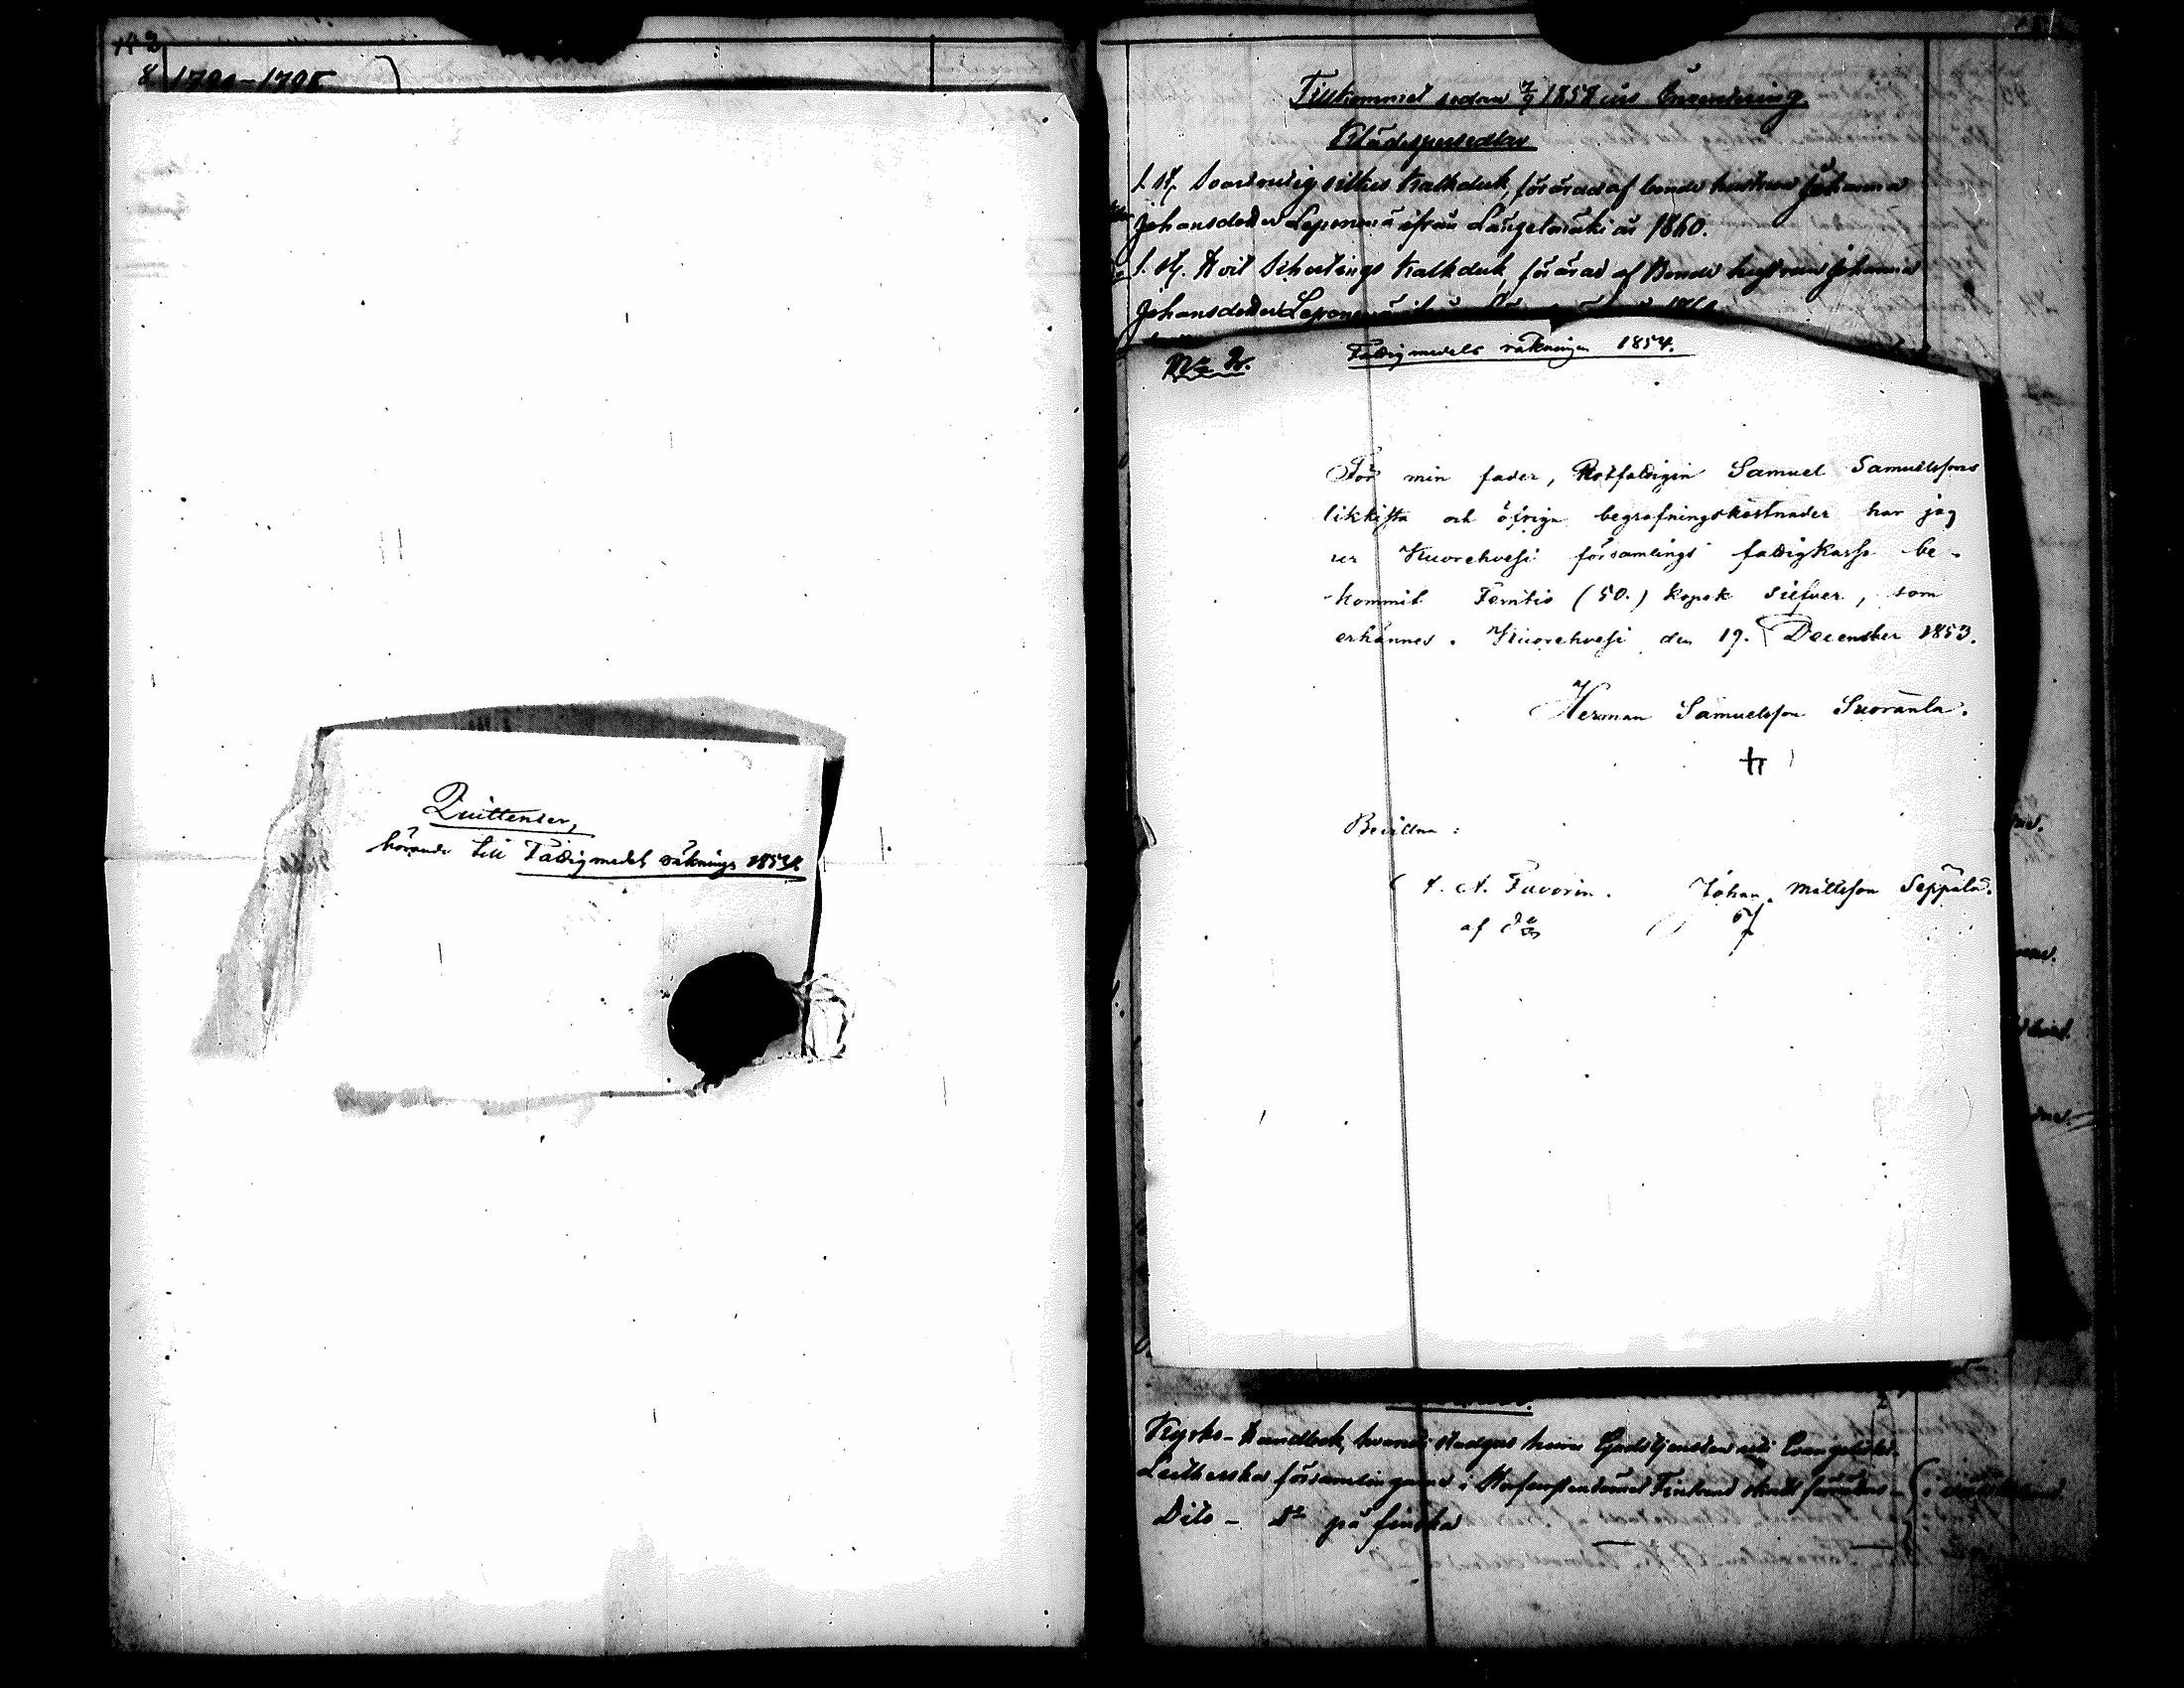 142
8 1790-1795
Quittenser,
hörande till Fattigmedels räkning 1853.
Tillkommit sedan 7/9 1857 års Inventering.
Klädespersedlar
1. st. Svartrutig silkes Kalkduk, förärad af bonde hustrun Johanna
Johansdotter Leponiemi ifrån Längelmäki år 1860.
1. st. Hvit Schertings Kalkduk, förärad af Bonde hustrun Johanna
Johansdotter
No 2.
Fattigmedels räkningen 1854.
För min fader, Rotfattigen Samuel Samuelssons
likkista och öfriga begrafningskostnader har jag
ur Kuorehvesi församlings fattigkassa be-
kommit Femtio (50.) kopek silfver, som
erkännes. Kuorehvesi den 19. December 1853.
Herman Samuelsson Suoranla.
Bevittna:
A. Favorin. Johan Mattsson Seppälä.
af
Kyrko-Handbok, huruti stadgas huru Gudstjensten uti Evangeliskt
Lutherska församlingarne i Storfurstendömet Finland skall
Dito - Do på finska